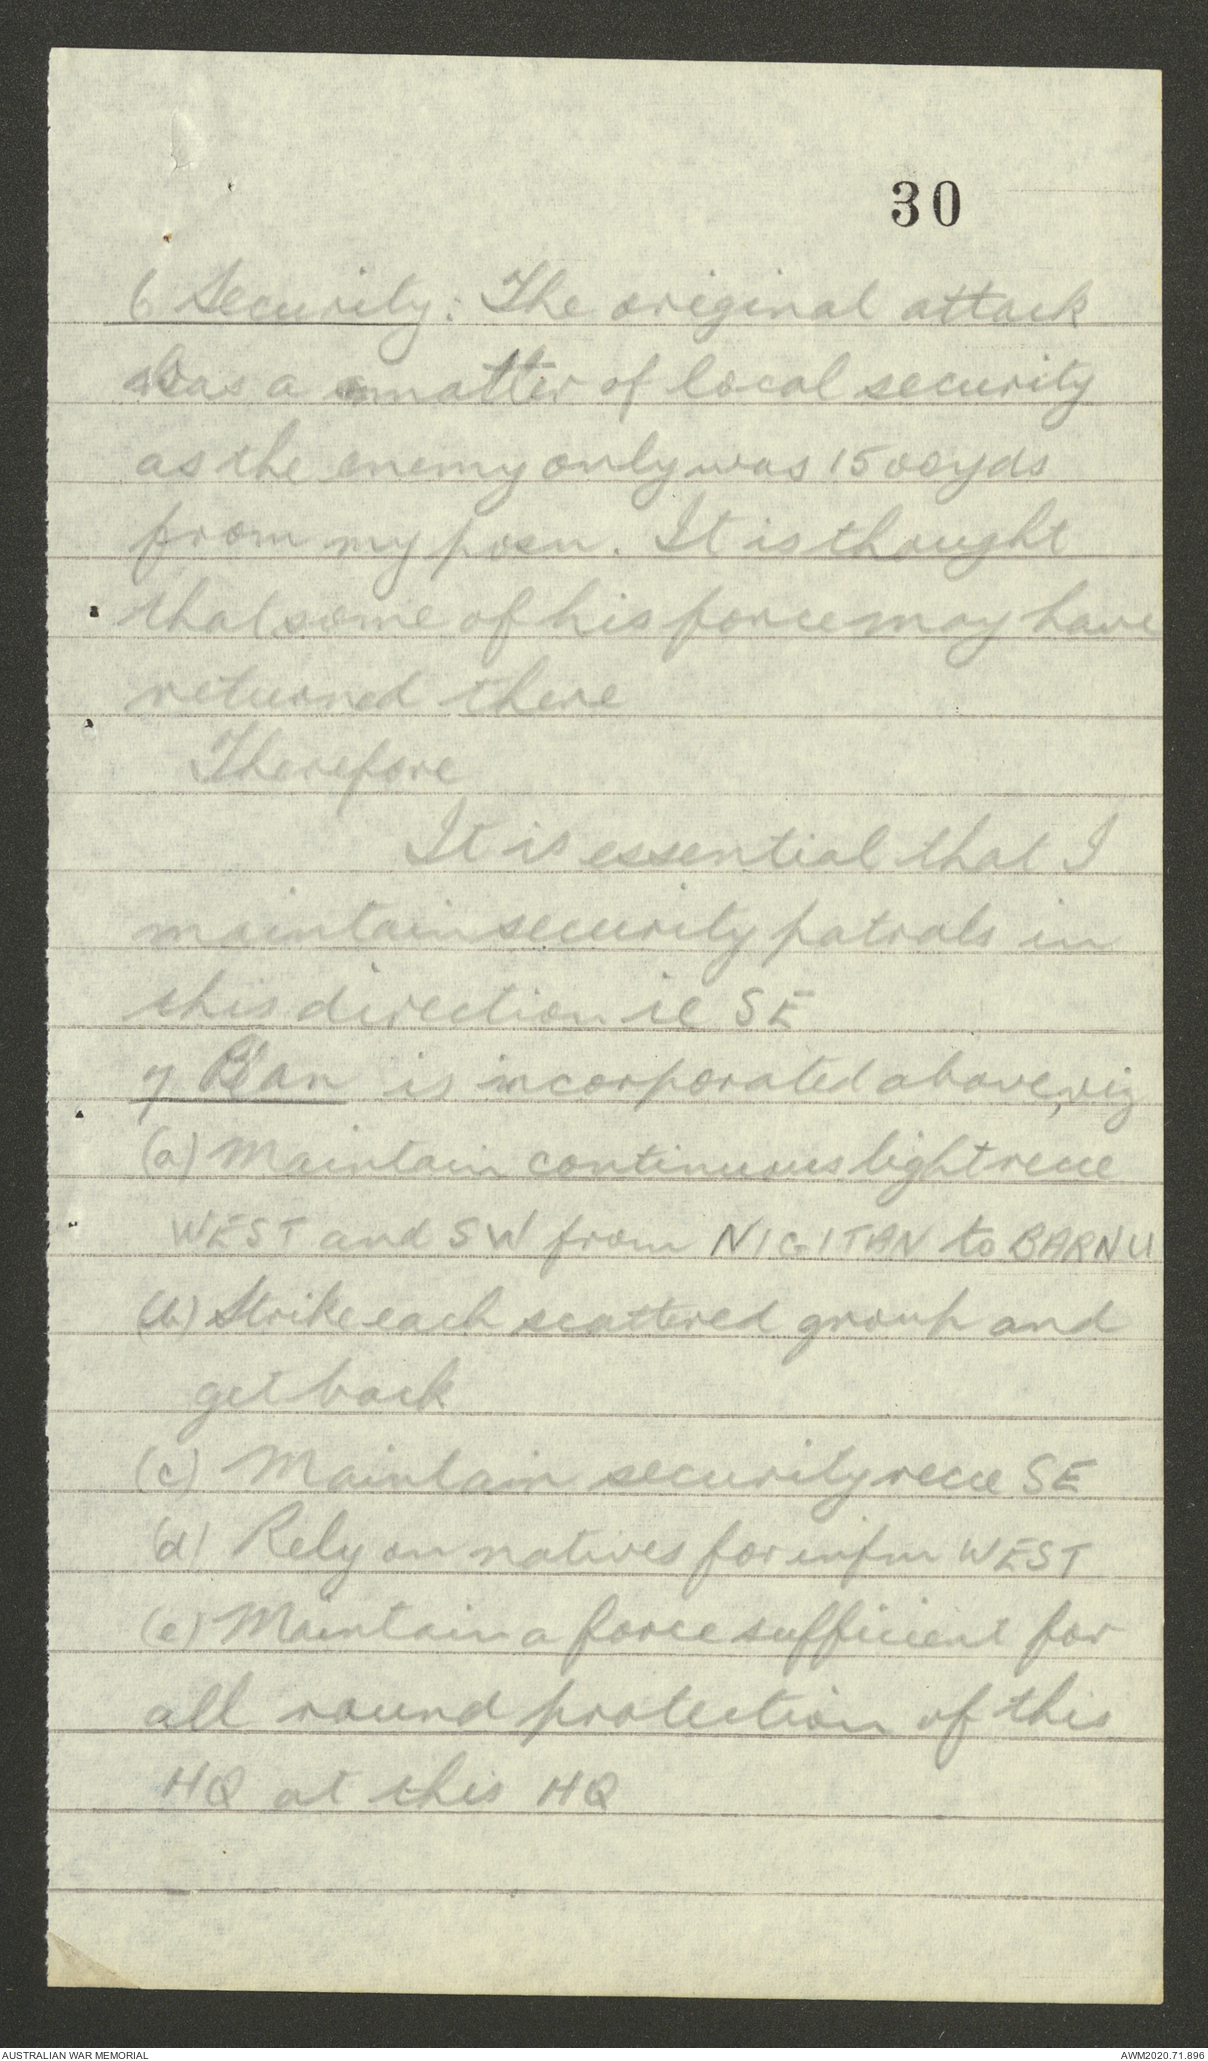 30
6 Security: The original attack
was a matter of local security
as the enemy only was 1500yds
from my posn. It is thought
that some of his force may have
returned there
Therefore
It is essential that I
maintain security patrols in
this direction ie SE
7 Plan is incorporated above, viz
(a) Maintain continuous light recce
WEST and SW from NIGITAN to BARNU
(b) Strike each scattered group and
get back
(c) Maintain security recce SE
(d) Rely on natives for infm WEST
(e) Maintain a force sufficient for
all round protection of this
HQ at this HQ
AUSTRALIAN WAR MEMORIAL
AWM2020.71.896